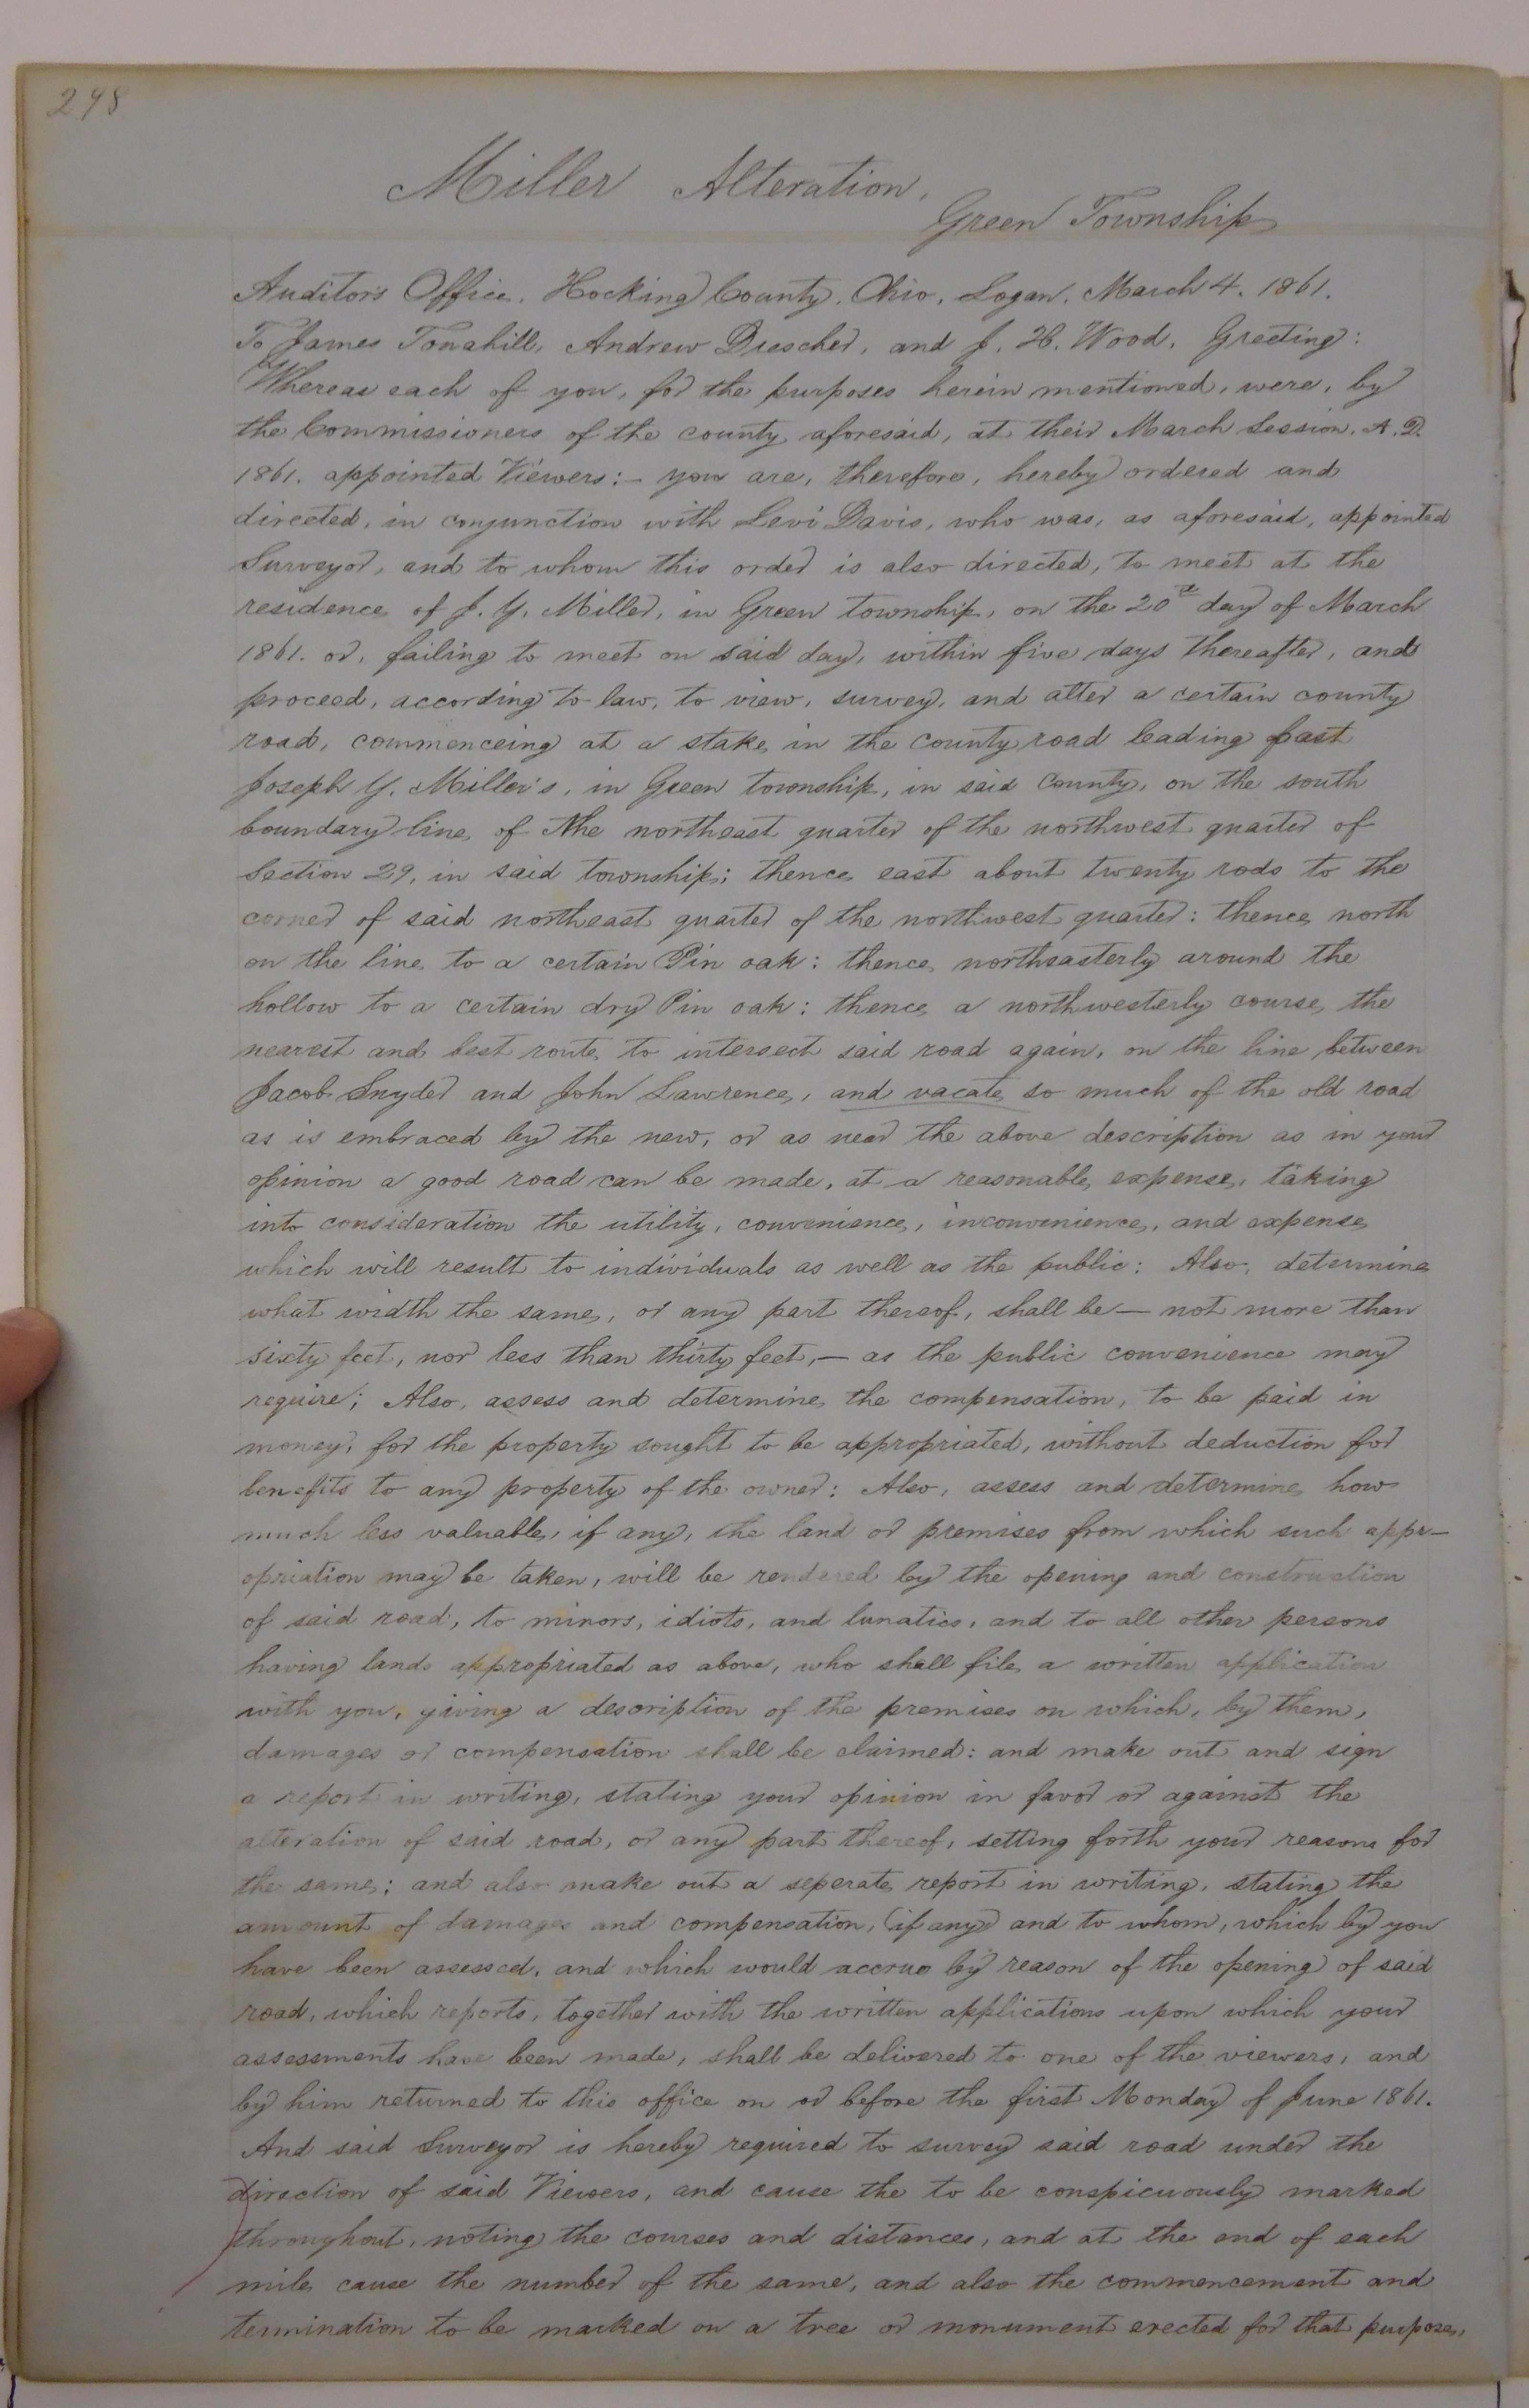 298
Miller Alteration.
Green Township
Auditor's Office, Hocking County, Ohio, Logan, March 4. 1861.
To James Tonahill, Andrew Drescher, and J. H. Wood, Greeting:
Whereas each of you, for the purposes herein mentioned, were, by
the Commissioners of the county aforesaid, at their March Session, A. D.
1861. appointed Viewers:- you are, therefore, hereby ordered and
directed, in conjunction with Levi Davis, who was, as aforesaid, appointed
Surveyor, and to whom this order is also directed, to meet at the
residence of J. Y. Miller, in Green township, on the 20th day of March
1861. or, failing to meet on said day, within five days thereafter, and
proceed, according to law, to view, survey, and alter a certain county
road, commenceing at a stake in the county road leading past
Joseph Y. Miller's, in Green township, in said County, on the south
boundary line of the northeast quarter of the northwest quarter of
Section 29, in said township; thence east about twenty rods to the
corner of said northeast quarter of the northwest quarter: thence north
on the line to a certain Pin oak: thence northeasterly around the
hollow to a certain dry Pin oak: thence a northwesterly course the
nearest and best route to intersect said road again, on the line between
Jacob Snyder and John Lawrence, and vacate so much of the old road
as is embraced by the new, or as near the above description as in your
opinion a good road can be made, at a reasonable expense, taking
into consideration the utility, convenience, inconvenience, and expense
which will result to individuals as well as the public: Also, determine
what width the same, or any part thereof, shall be — not more than
sixty feet, nor less than thirty feet, — as the public convenience may
require; Also, assess and determine the compensation, to be paid in
money, for the property sought to be appropriated, without deduction for
benefits to any property of the owner: Also, assess and determine how
much less valuable, if any, the land or premises from which such appr-
opriation may be taken, will be rendered by the opening and construction
of said road, to minors, idiots, and lunatics, and to all other persons
having lands appropriated as above, who shall file a written application
with you, giving a description of the premises on which, by them,
damages or compensation shall be claimed: and make out and sign
a report in writing, stating your opinion in favor or against the
alteration of said road, or any part thereof, setting forth your reasons for
the same; and also make out a seperate report in writing, stating the
amount of damages and compensation, (if any) and to whom, which by you
have been assessed, and which would accrue by reason of the opening of said
road, which reports, together with the written applications upon which your
assessments have been made, shall be delivered to one of the viewers, and
by him returned to this office on or before the first Monday of June 1861.
And said Surveyor is hereby required to survey said road under the
direction of said Viewers, and cause the to be conspicuously marked
throughout, noting the courses and distances, and at the end of each
mile cause the number of the same, and also the commencement and
termination to be marked on a tree or monument erected for that purpose,